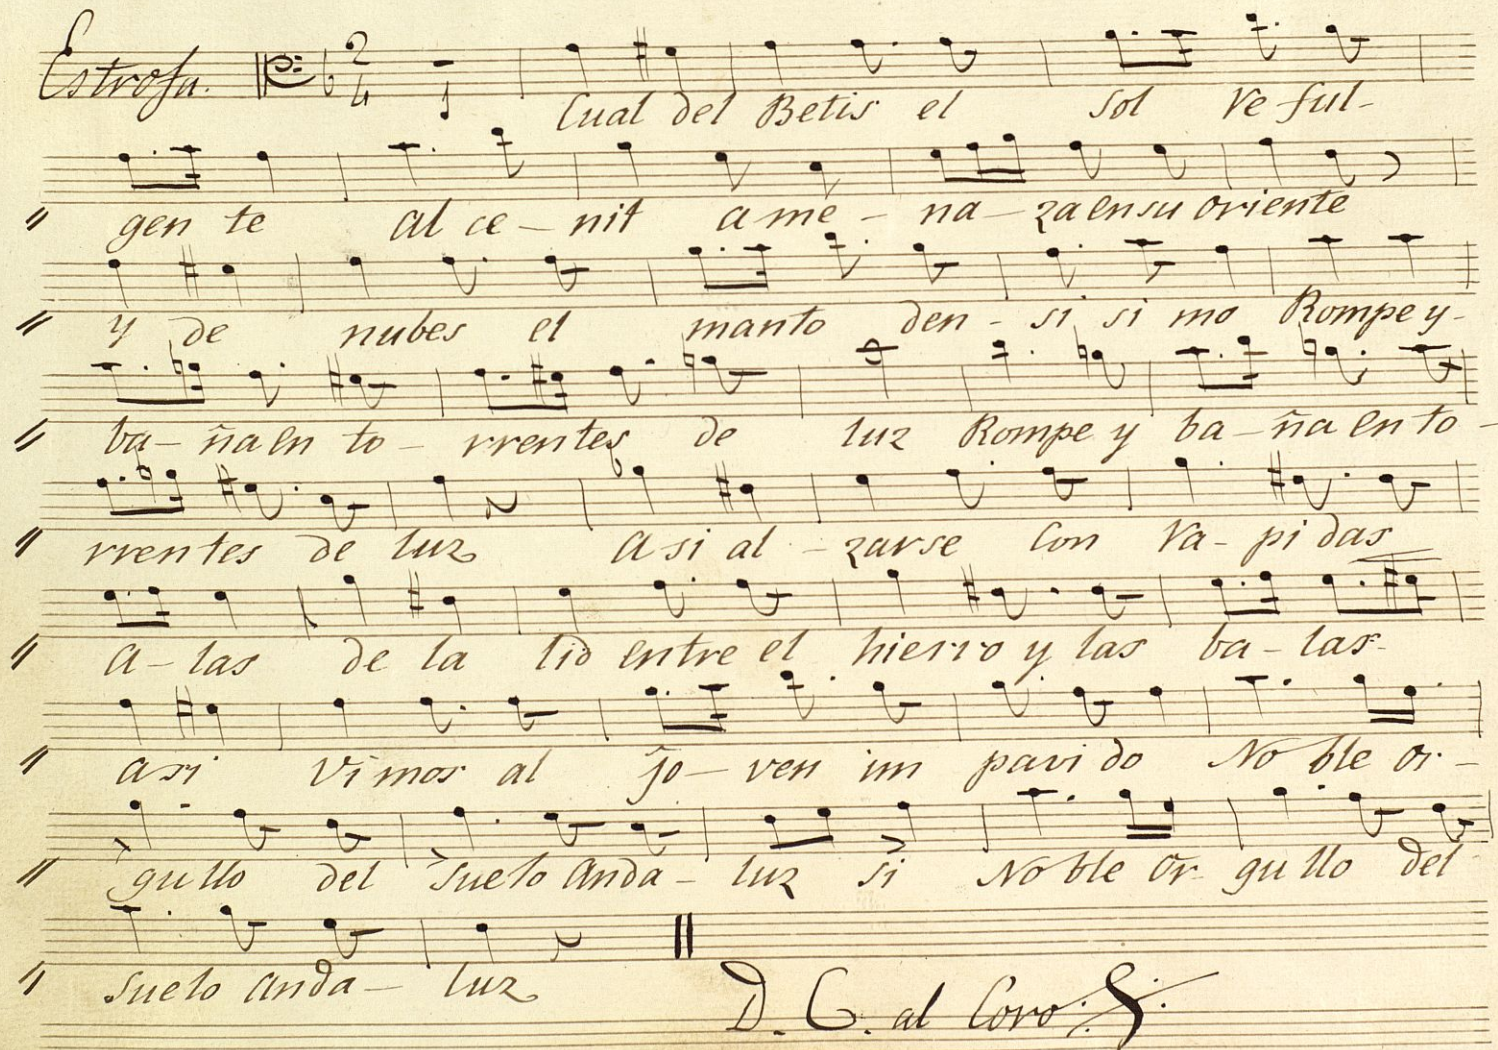 Estrofa. 2 4 1
Cual del Betis el sol re ful-
gen te al ce - nit a me - na - za en su oriente
y de nubes el manto den - si si mo Rompe y-
ba - ña en to - rrentes de luz Rompe y ba - ña en to -
rrentes de luz a si al - zarse con ra - pi das
a - las de la lid entre el hierro y las ba - las-
asi vimos al jo - ven im pavi do No ble or -
gu llo del suelo anda - luz si No ble or - gu llo del
suelo anda - luz
D. C. al Coro